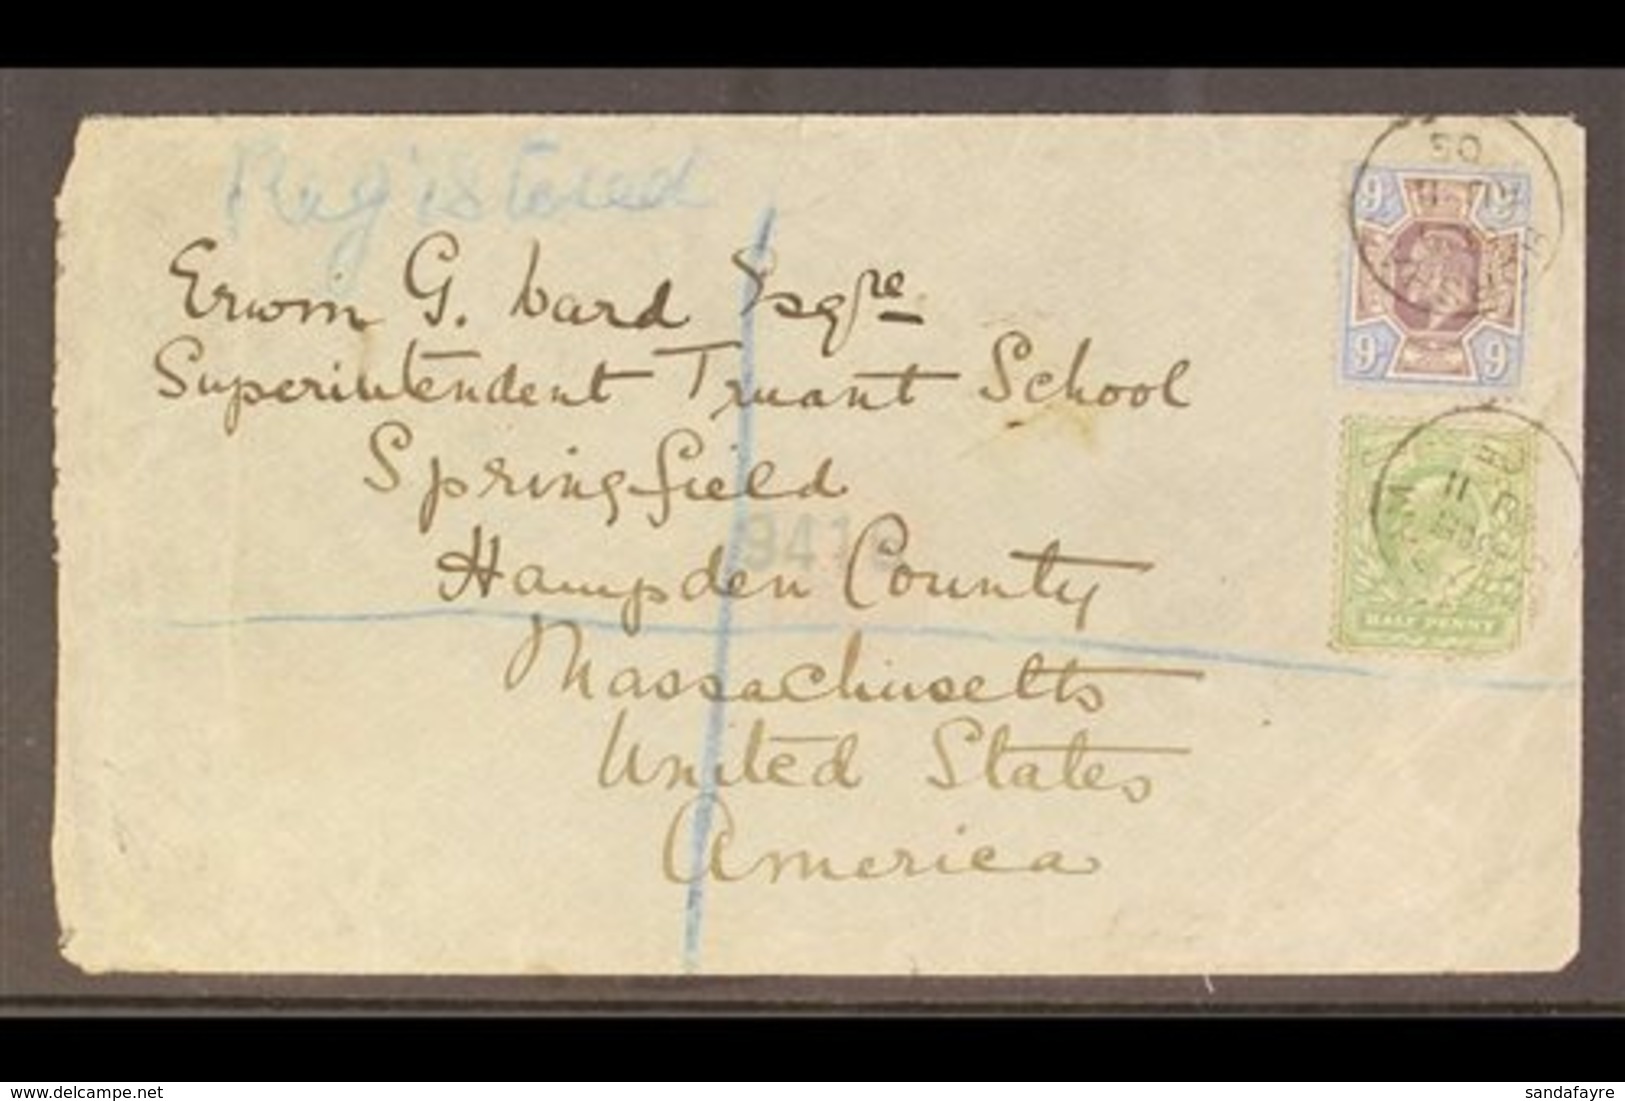 Registered
Erwin G. Ward Esqre
Superintendent Truant School
Springfield
Hampden County
Massachusetts
United States
America
941
9 9
9 9
05
11
HALF PENNY
© the-western-front
sandafayre